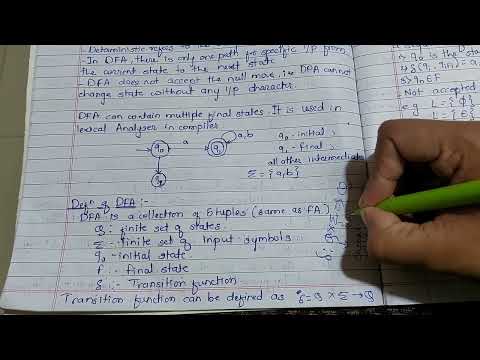 - Deterministic refers to the
- In DFA, there is only one path for specific I/P from
the current state to the next state
- DFA does not accept the null move, i.e DFA cannot
change state without any I/P character.
DFA can contain multiple final states. It is used in
lexical Analyser in compiler
a
a,b
q₀
q₁
q₂
q₀ - initial,
q₁ - final,
all other intermediate
Σ = {a,b}
Defn of DFA :-
DFA is a collection of 5 tuples (same as FA)
Q : finite set of states.
Σ - finite set of input symbols
q₀ - initial state
F : final state
δ :- Transition function
Transition function can be defined as δ = Q × Σ → Q
q₀ is the
Not accepted
e.g L = {ϕ}
L = {ε}